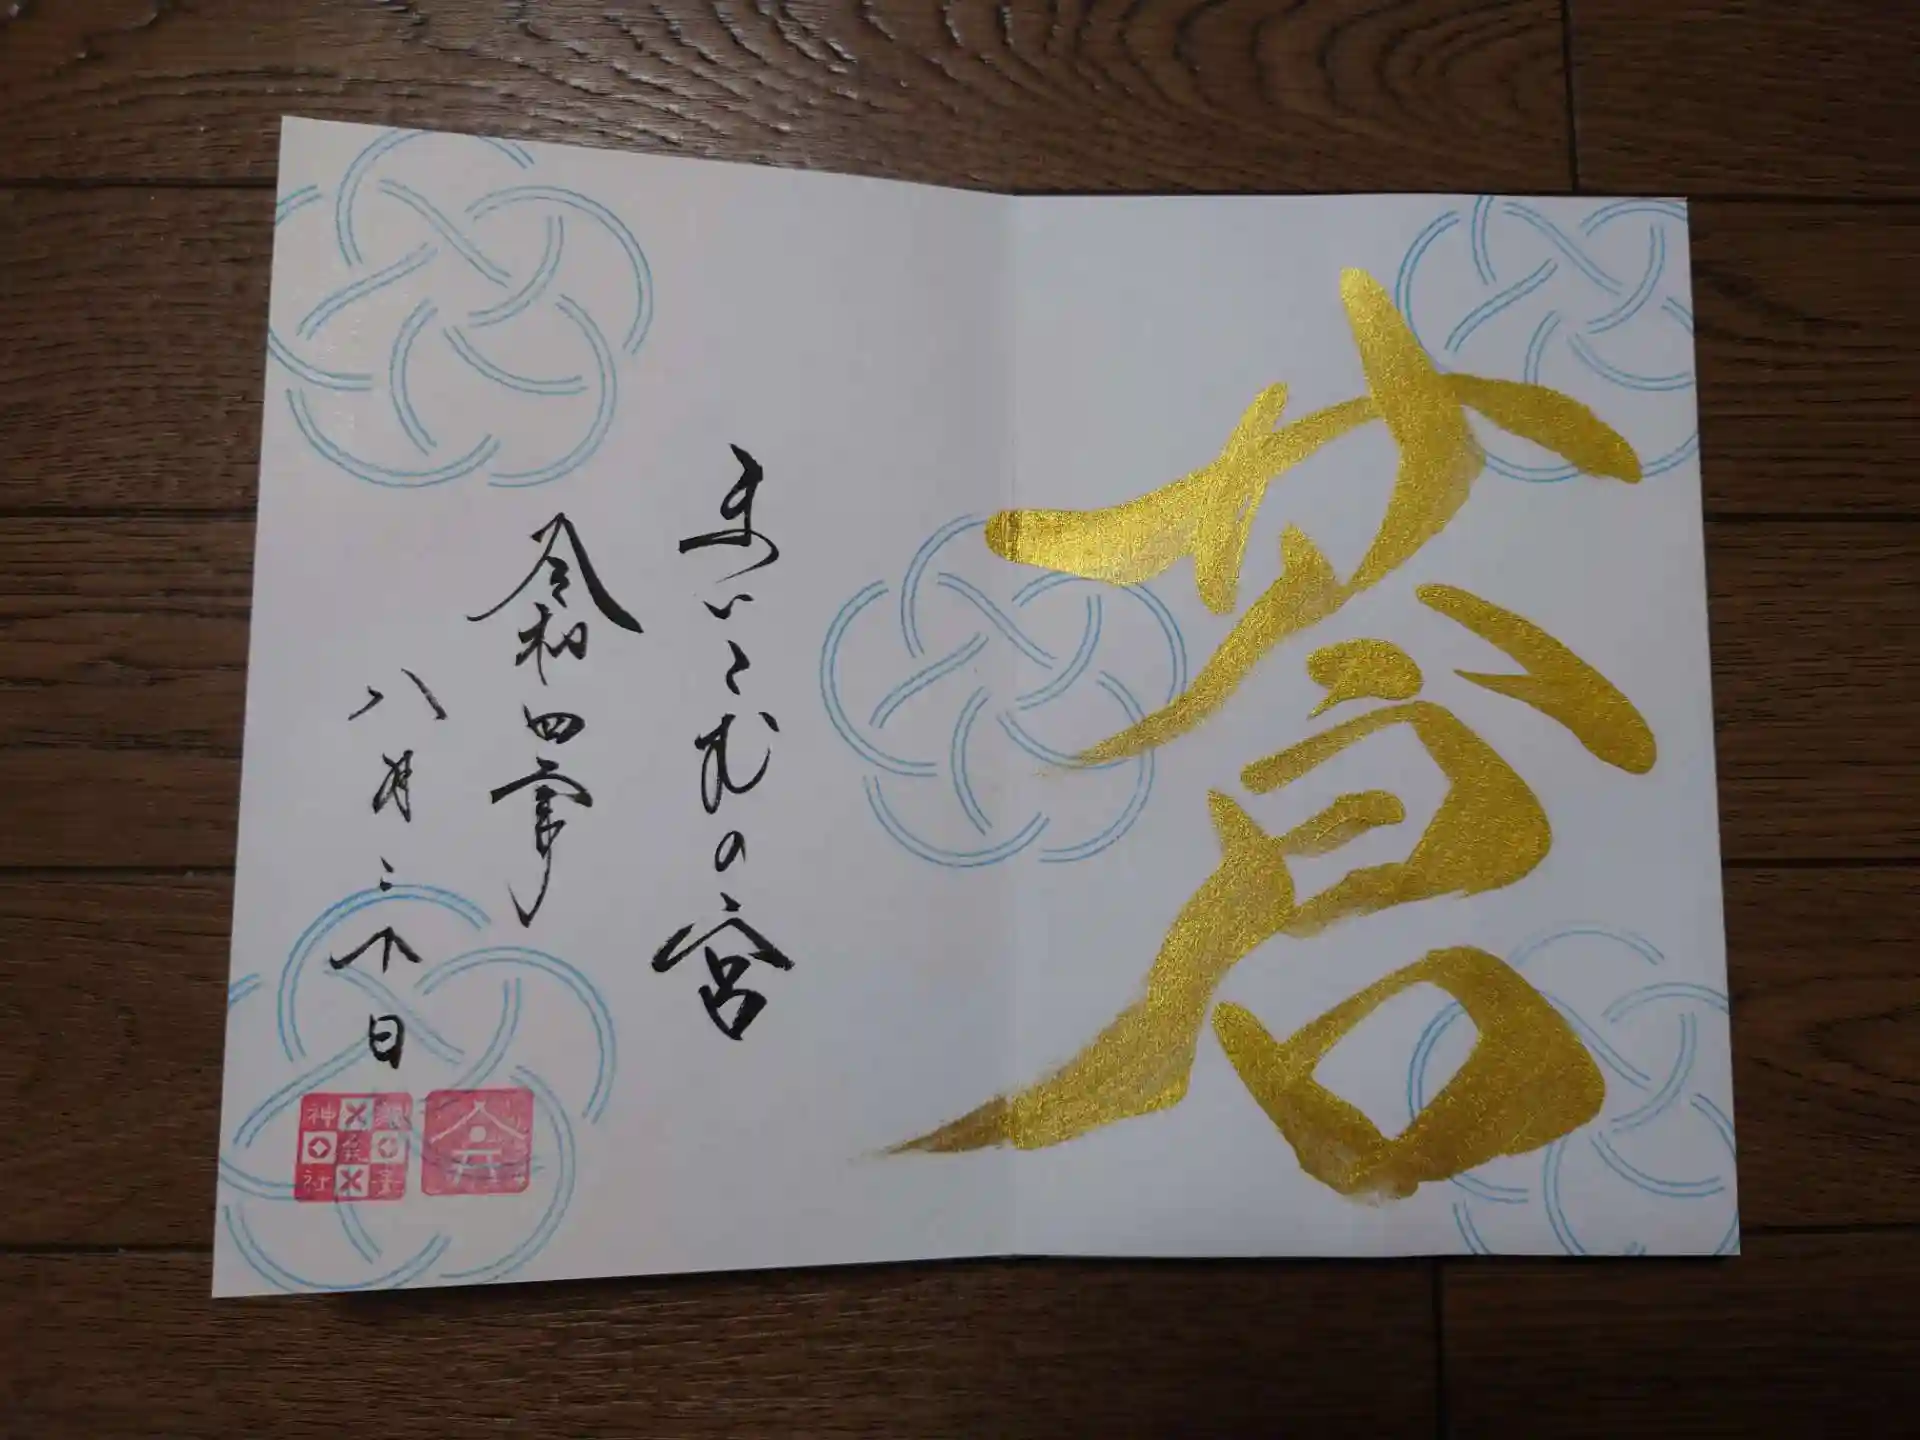 蒼
まいこむの宮
令和四年
八月二十日